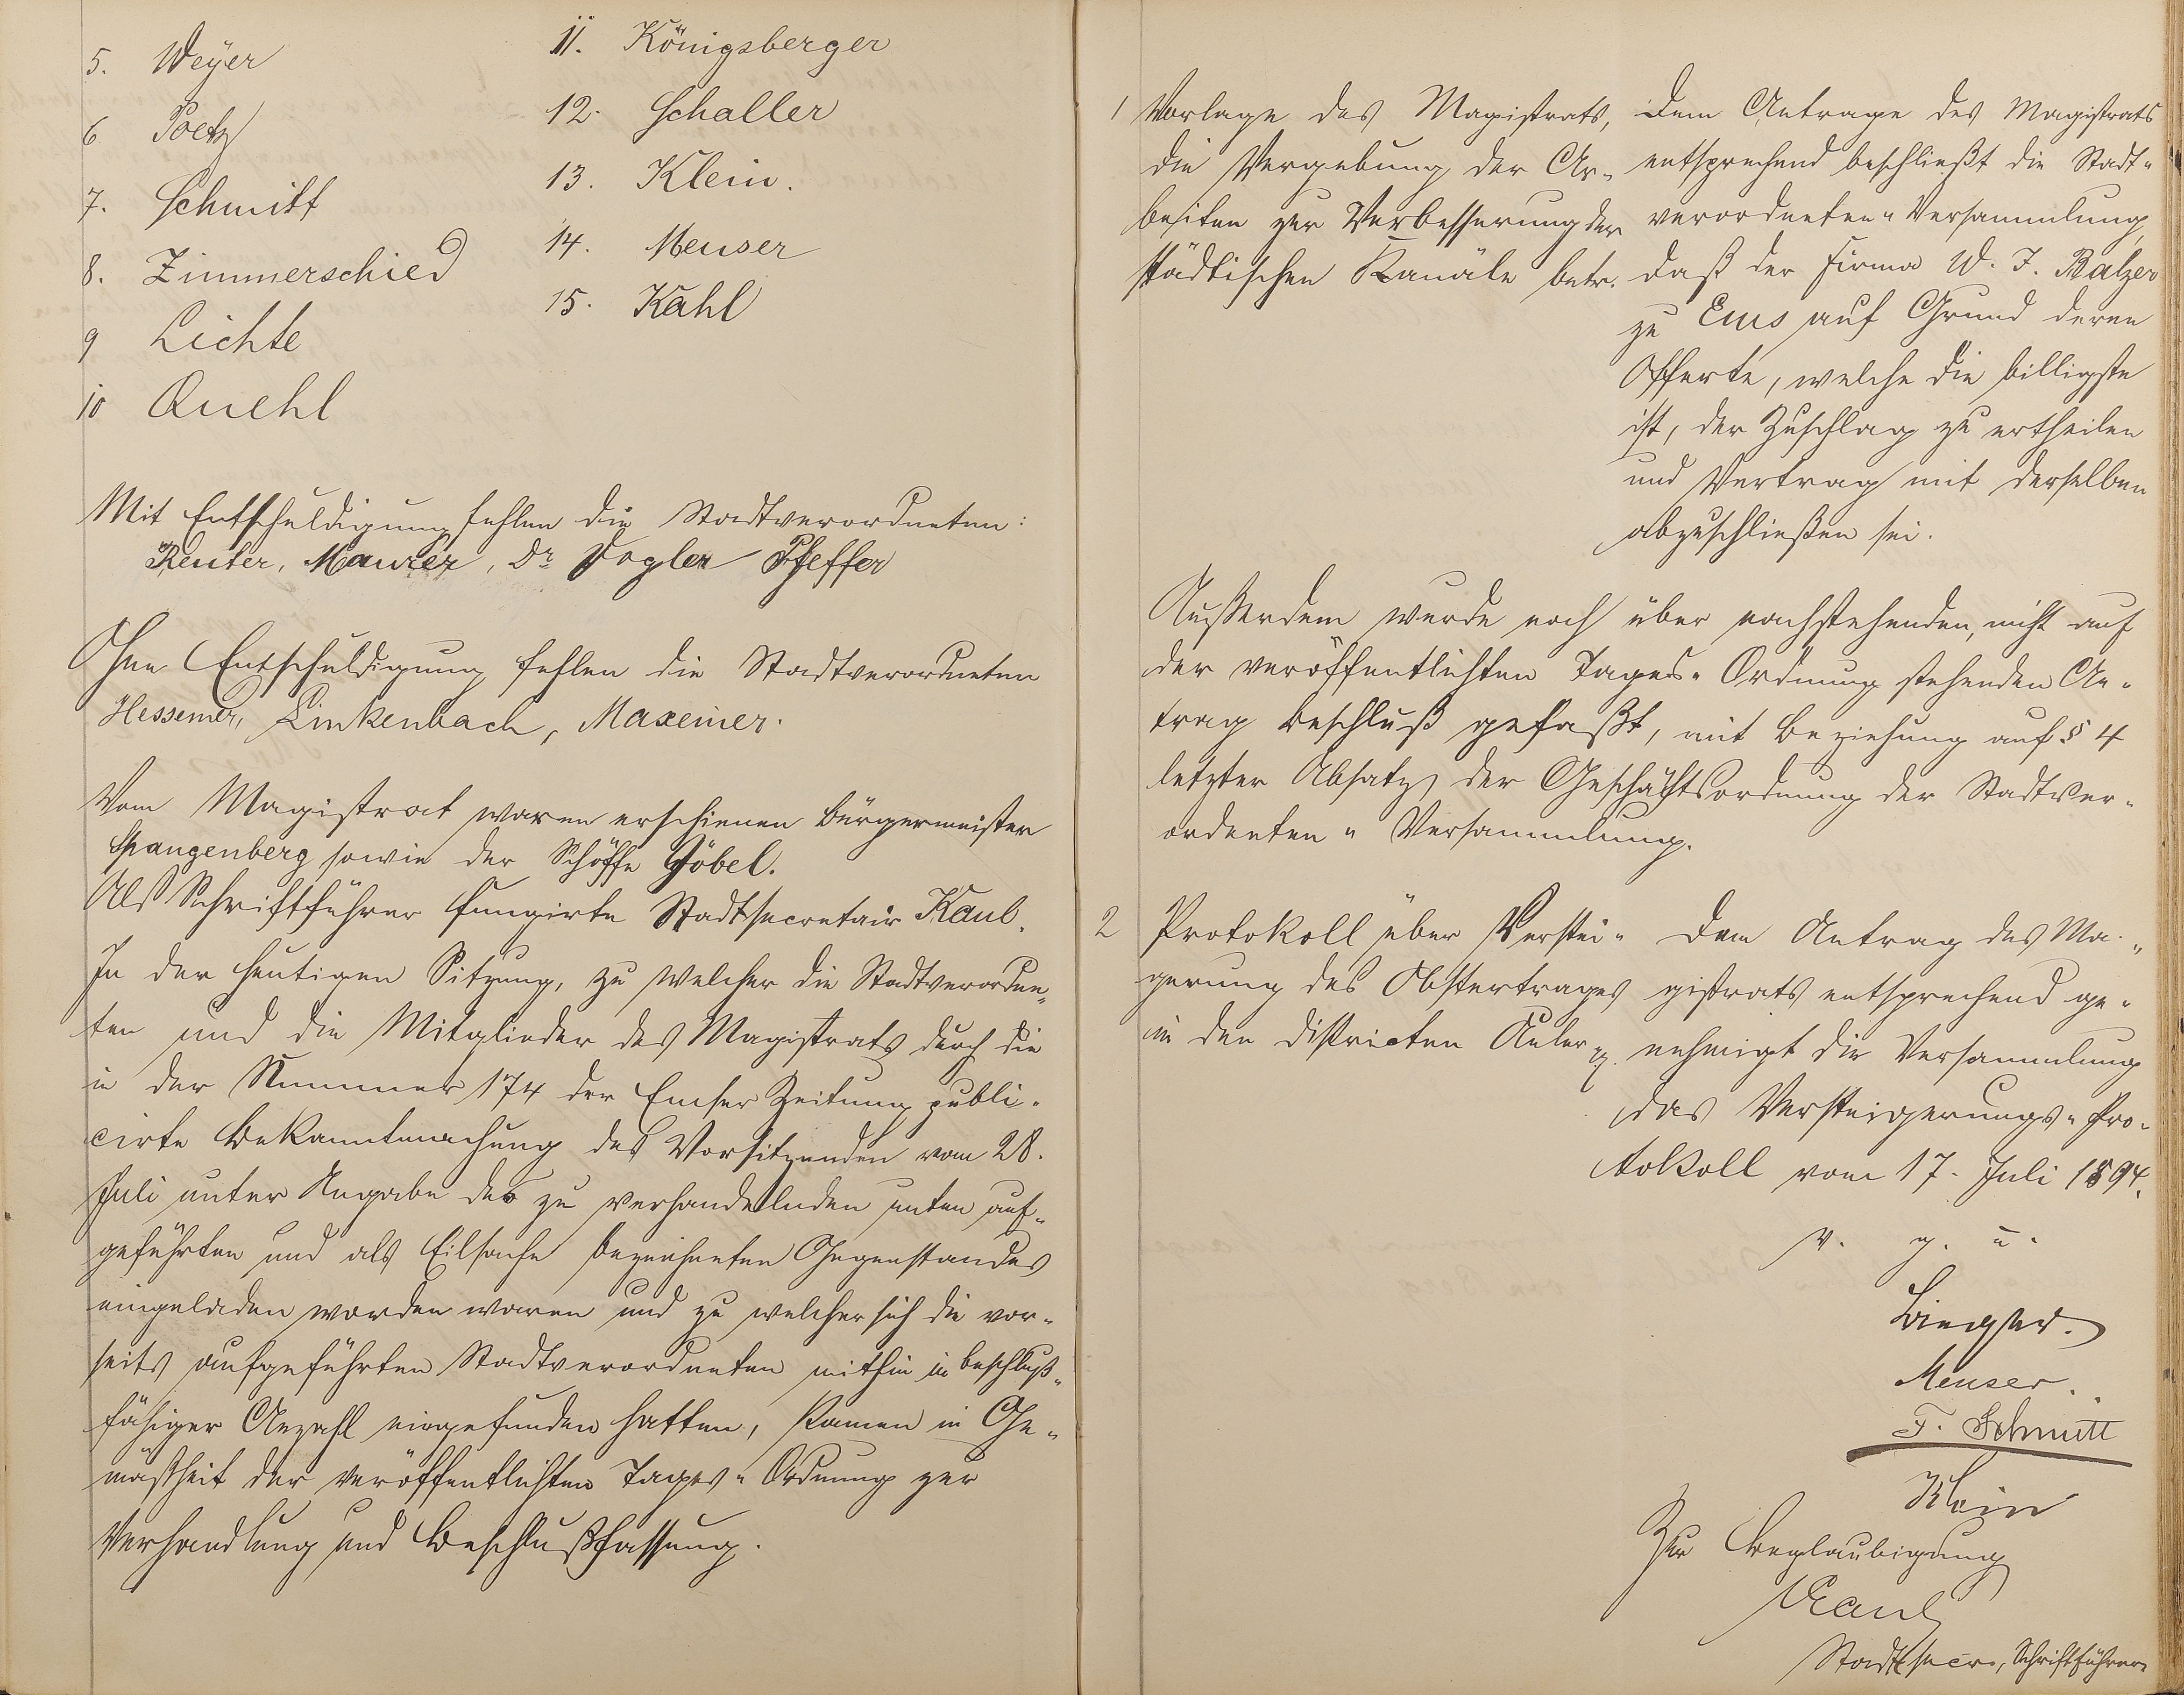 5. Weyer
6 Poetz
7. Schmitt
8. Zimmerschied
9 Lichte
10 Quehl
11. Königsberger
12. Schaller
13. Klein.
14. Meuser
15. Kahl
Mit Entschuldigung fehlen die Stadtverordneten:
Reuter, Maurer, Dr Vogler Pfeffer
Ohne Entschuldigung fehlen die Stadtverordneten
Hessemer, Linkenbach, Maxeiner.
Vom Magistrat waren erschienen Bürgermeister
Spangenberg sowie der Schöffe Göbel.
Als Schriftführer fungirte Stadtsecretair Kaul.
In der heutigen Sitzung, zu welcher die Stadtverordne-
ten und die Mitglieder des Magistrats durch die
in der Nummer 174 der Emser Zeitung publi-
cirte Bekanntmachung des Vorsitzenden vom 28.
Juli unter Angabe des zu verhandelnden unten auf-
geführten und als Eilsache bezeichneten Gegenstandes
eingeladen worden waren und zu welcher sich die vor-
seits aufgeführten Stadtverordneten mithin in beschluß-
fähiger Anzahl eingefunden hatten, kamen in Ge-
mäßheit der veröffentlichten Tages-Ordnung zur
Verhandlung und Beschlußfassung.
1 Vorlage des Magistrats,
die Vergebung der Ar-
beiten zur Verbesserung der
städtischen Kanäle betr.
Dem Antrage des Magistrats
entsprechend beschließt die Stadt-
verordneten-Versammlung,
daß der Firma W. J. Balzer
zu Ems auf Grund deren
Offerte, welche die billigste
ist, der Zuschlag zu ertheilen
und Vertrag mit derselben
abzuschließen sei.
Außerdem wurde noch über nachstehenden, nicht auf
der veröffentlichten Tages-Ordnung stehenden An-
trag Beschluß gefaßt, mit Beziehung auf § 4
letzter Absatz der Geschäftsordnung der Stadtver-
ordneten-Versammlung.
2 Protokoll über Verstei-
gerung des Obstertrages
in den Districten Auler pp.
Dem Antrag des Ma-
gistrats entsprechend ge-
nehmigt die Versammlung
das Versteigerungs-Pro-
tokoll vom 17. Juli 1894.
v. g. u.
Meuser.
F. Schmitt
Klein
Zur Beglaubigung
Kaul
Stadtsecr., Schriftführer